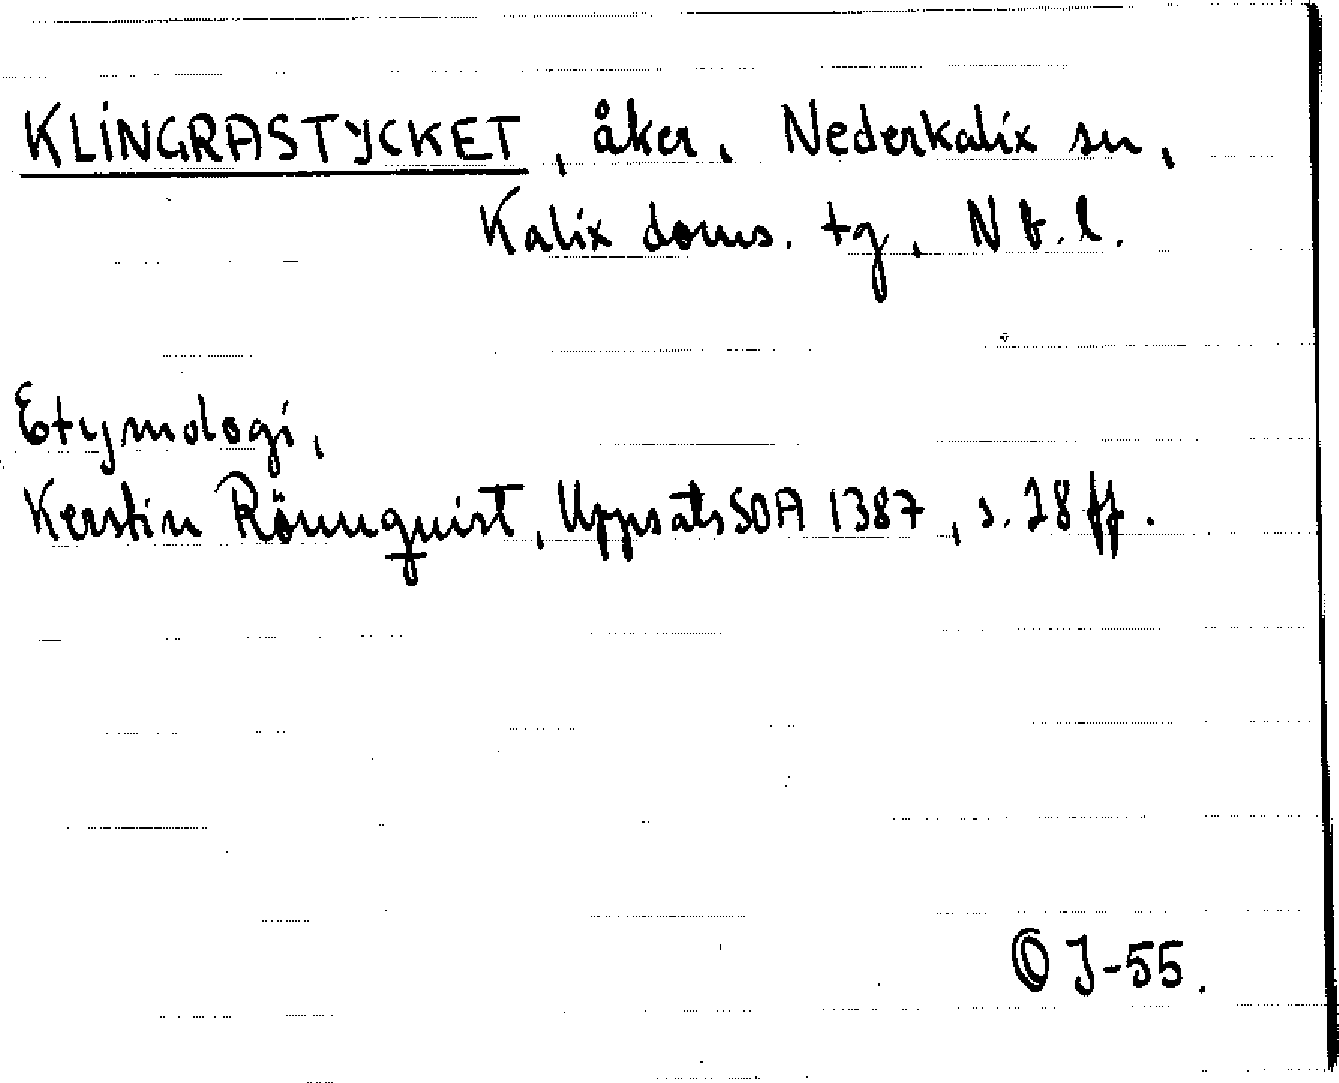 KLINGRASTYCKET, åker, Nederkalix sn,
Kalix doms. tg, Nb.l.
Etymologi,
Kerstin Rönnquist, Uppsats SOA 1387, s. 28 ff.
OJ-55.